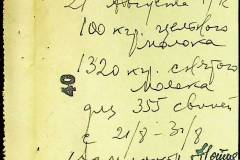 21 Августа
100 кгр. цельного
молока
1320 кгр. снятого
молока
для 355 свиней
с 21/8 – 31/8
40